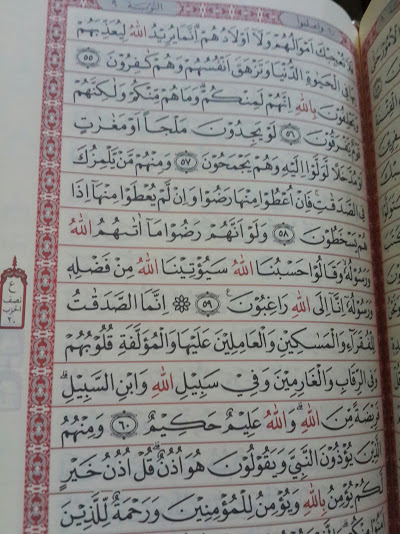 واعلموا ١٠ التوبة ٩
تُعْجِبْكَ اَمْوَالُهُمْ وَلَا اَوْلَادُهُمْ اِنَّمَا يُرِيدُ اللّٰهُ لِيُعَذِّبَهُمْ
فِي الْحَيٰوةِ الدُّنْيَا وَتَزْهَقَ اَنْفُسُهُمْ وَهُمْ كَافِرُونَ ٥٥
وَيَحْلِفُونَ بِاللّٰهِ اِنَّهُمْ لَمِنْكُمْ وَمَا هُمْ مِنْكُمْ وَلٰكِنَّهُمْ
قَوْمٌ يَفْرَقُونَ ٥٦ لَوْ يَجِدُونَ مَلْجَـًٔا اَوْ مَغَارَاتٍ
اَوْ مُدَّخَلًا لَوَلَّوْا اِلَيْهِ وَهُمْ يَجْمَحُونَ ٥٧ وَمِنْهُمْ مَنْ يَلْمِزُكَ
فِي الصَّدَقَاتِ فَاِنْ اُعْطُوا مِنْهَا رَضُوا وَاِنْ لَمْ يُعْطَوْا مِنْهَا اِذَا
هُمْ يَسْخَطُونَ ٥٨ وَلَوْ اَنَّهُمْ رَضُوا مَا اٰتٰيهُمُ اللّٰهُ
وَرَسُولُهُ وَقَالُوا حَسْبُنَا اللّٰهُ سَيُؤْتِينَا اللّٰهُ مِنْ فَضْلِهِ
وَرَسُولُهُ اِنَّا اِلَى اللّٰهِ رَاغِبُونَ ٥٩ اِنَّمَا الصَّدَقَاتُ
لِلْفُقَرَاءِ وَالْمَسَاكِينِ وَالْعَامِلِينَ عَلَيْهَا وَالْمُؤَلَّفَةِ قُلُوبُهُمْ
وَفِي الرِّقَابِ وَالْغَارِمِينَ وَفِي سَبِيلِ اللّٰهِ وَابْنِ السَّبِيلِ
فَرِيضَةً مِنَ اللّٰهِ وَاللّٰهُ عَلِيمٌ حَكِيمٌ ٦٠ وَمِنْهُمُ
الَّذِينَ يُؤْذُونَ النَّبِيَّ وَيَقُولُونَ هُوَ اُذُنٌ قُلْ اُذُنُ خَيْرٍ
لَكُمْ يُؤْمِنُ بِاللّٰهِ وَيُؤْمِنُ لِلْمُؤْمِنِينَ وَرَحْمَةٌ لِلَّذِينَ
ع
نصف
الحزب
٢٠